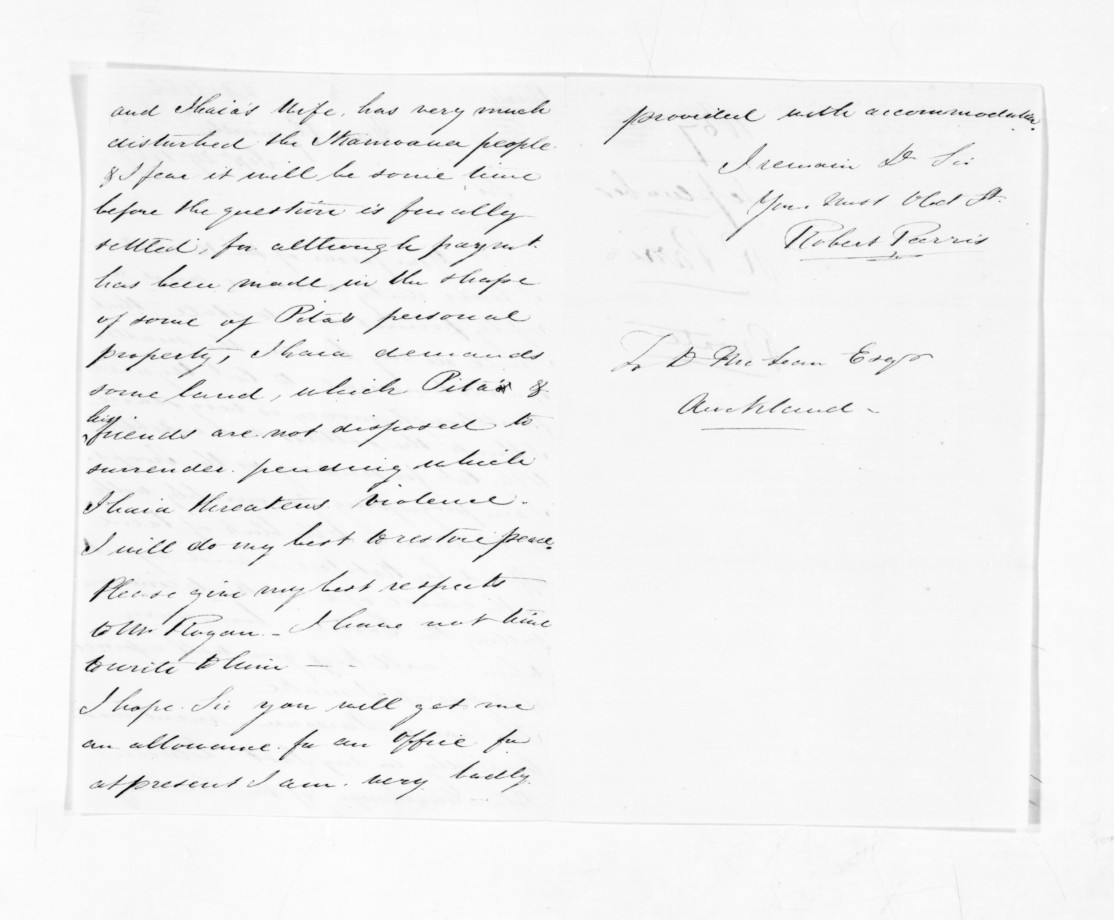 and Ihaia's Wife, has very much
disturbed the Ngamoana people
& I fear it will be some time
before the question is finally
settled, for although paymt.
has been made in the shape
of some of Pita's personal
property, Ihaia demands
some land, which Pita's &
his friends are not disposed to
surrender. pending which
Ihaia threatens violence -
I will do my best to restore peace.
Please give my best respects
to Mr Rogan. - I have not time
to write to him - -
I hope Sir you will get me
an allowance for an Office for
at present I am very badly
provided with accommodation.
I remain Dr Sir
Your Most Obdt St.
Robert Parris
To D McLean Esqr
Auckland -